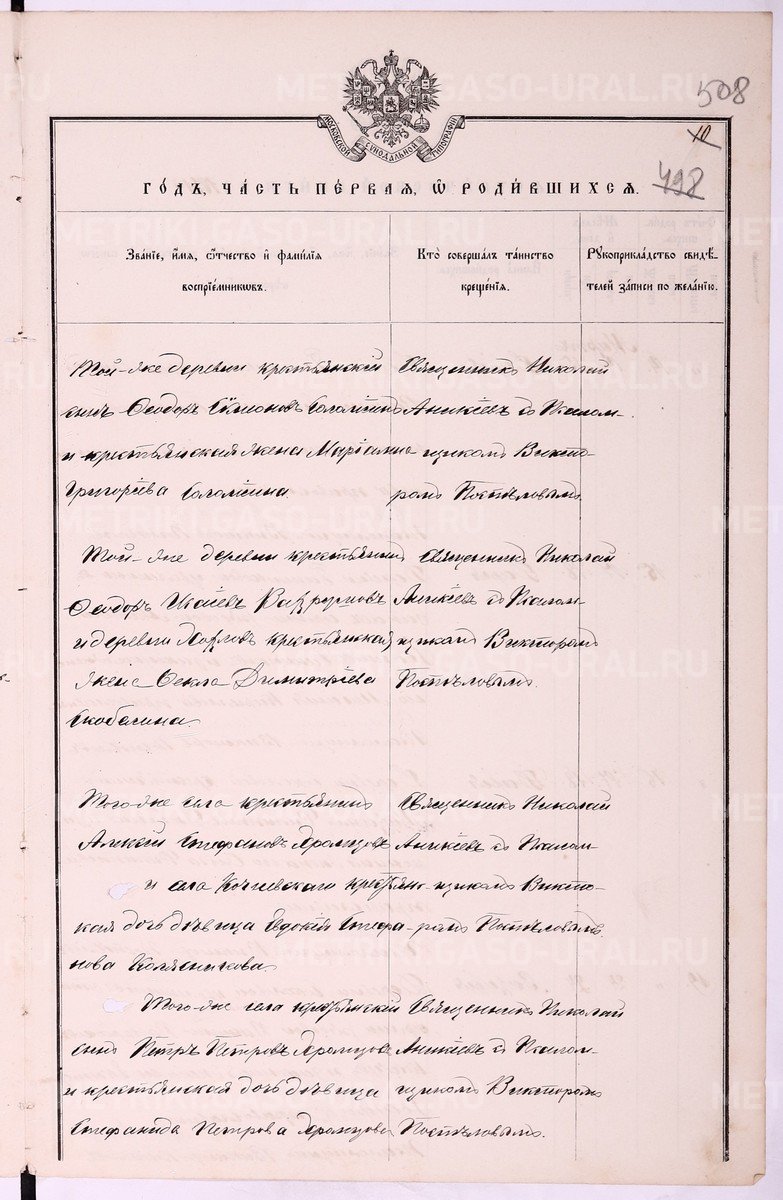 508
10
498
МОСКОВСКОЙ СУНОДАЛЬНОЙ ТИПОГРАФІИ
ГО́ДЪ, ЧА́СТЬ ПЕ́РВАЯ, Ѡ РОДИ́ВШИХСЯ.
Зва́нїе, и҆́мя, ѻ҆́тчество и҆ фами́лїя
воспрїе́мникѡвъ.
Кто̀ соверша́лъ та́инство
креще́нїя.
Рꙋкоприкла́дство свидѣ́-
телей за́писи по жела́нїю.
Той-же деревни крестьянскій
сынъ Ѳеодоръ Симіоновъ
и крестьянская жена Маріамна
Григоріева
Священникъ Николай
Аникіевъ съ Псалом-
щикомъ Викто-
ромъ Постѣловымъ
Той-же деревни крестьянинъ
Ѳеодоръ Исаіевъ
и деревни крестьянская
жена Ѳекла Димитріева
Скобелина
Священникъ Николай
Аникіевъ съ Псалом-
щикомъ Викторомъ
Постѣловымъ.
Того-же села крестьянинъ
Алексій Стефановъ
и села Кочневскаго крестьян-
ская дочь дѣвица Евдокія Стефа-
нова Колясникова
Священникъ Николай
Аникіевъ съ Псалом-
щикомъ Викто-
ромъ Постѣловымъ.
Того-же села крестьянскій
сынъ Петръ Петровъ
и крестьянская дочь дѣвица
Стефанида Петрова
Священникъ Николай
Аникіевъ съ Псалом-
щикомъ Викторомъ
Постѣловымъ.
METRIKI.GASO-URAL.RU